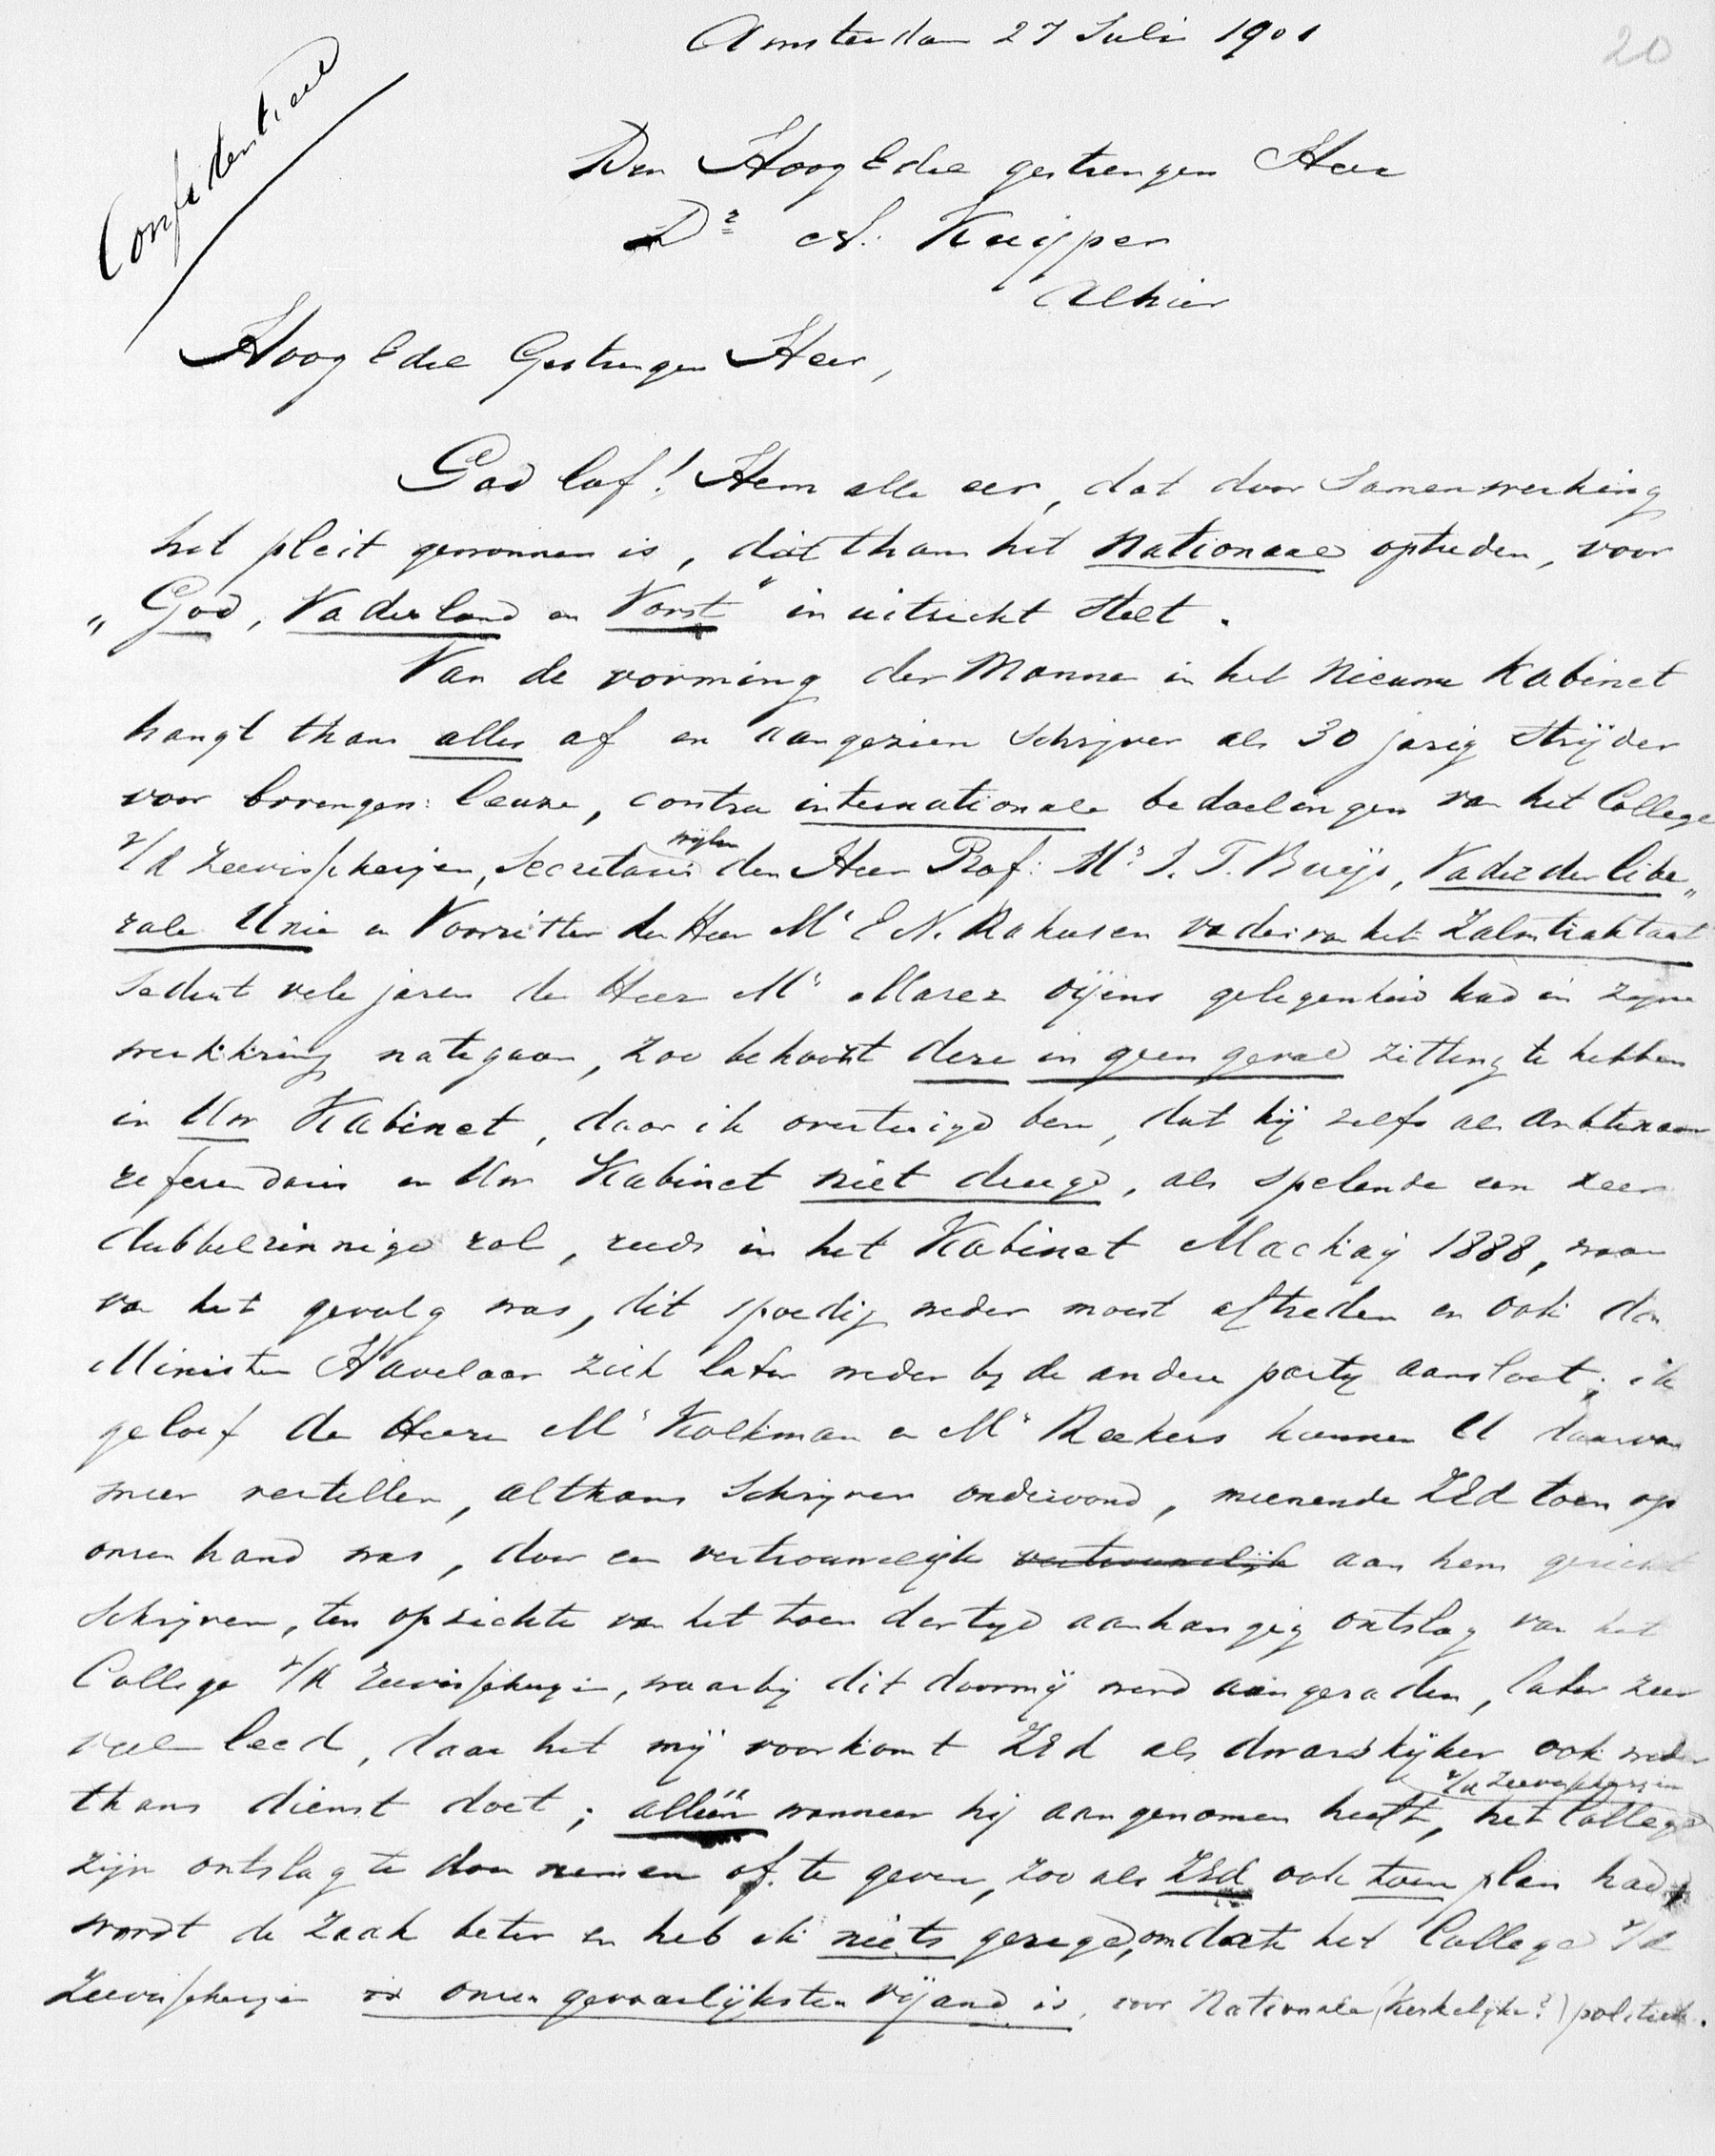 Amsterdam 27 Juli 1901
20
Confidentieel
Den HoogEdele gestrengen Heer
Dr A. Kuijper
Alhier
HoogEdele Gestrengen Heer,
God lof! Hem alle eer, dat door Samenwerking
het pleit gewonnen is, dat thans het Nationaal optreden, voor
„God, Vaderland en Vorst" in uitzicht stelt.
Van de vorming der Mannen in het Nieuwe Kabinet
hangt thans alles af en aangezien Schrijver als 30 jarig Strijder
voor bovengen: leuze, contra internationale bedoelingen van het College
v/d Zeevisscherijen, Secretaris wijlen den Heer Prof: Mr J. T. Buijs, Vader der libe„
rale Unie en Voorzitter den Heer Mr E. N. Rahusen vader van het Zalmtraktaat
Sedert vele jaren de Heer Mr Marez Oijens gelegenheid had in zijne
werkkring nategaan, zoo behoort deze in geen geval zitting te hebben
in Uw Kabinet, daar ik overtuigd ben, dat hij zelfs als Ambtenaar
referendaris in Uw Kabinet niet deugd, als spelende een zeer
dubbelzinnige rol, reeds in het Kabinet Mackaij 1888, waar
van het gevolg was, dit spoedig weder moest aftreden en ook den
Minister Havelaar zich later weder bij de andere partij aansloot; ik
geloof de Heeren Mr Kolkman en Mr Reekers kunnen U daarvan
meer vertellen, althans Schrijver ondervond, meenende ZEd toen op
onzen hand was, door een vertrouwelijk vertrouwelijk aan hem gericht
Schrijven, ten opzichte van het toen dertijd aanhangig ontslag van het
College v/d Zeevisscherijen, waarbij dit door mij werd aangeraden, later zeer
veel leed, daar het mij voorkomt ZEd als dwarskijker ook weder
thans dienst doet; alléén wanneer hij aangenomen heeft, het College v/d Zeevisscherijen
zijn ontslag te doen nemen of te geven, zoo als ZEd ook toen plan had,
wordt de zaak beter en heb ik niets gezegd, omdat het College v/d
Zeevisscherijen is onzen gevaarlijksten vijand is, voor Nationale (Kerkelijke?) politiek.